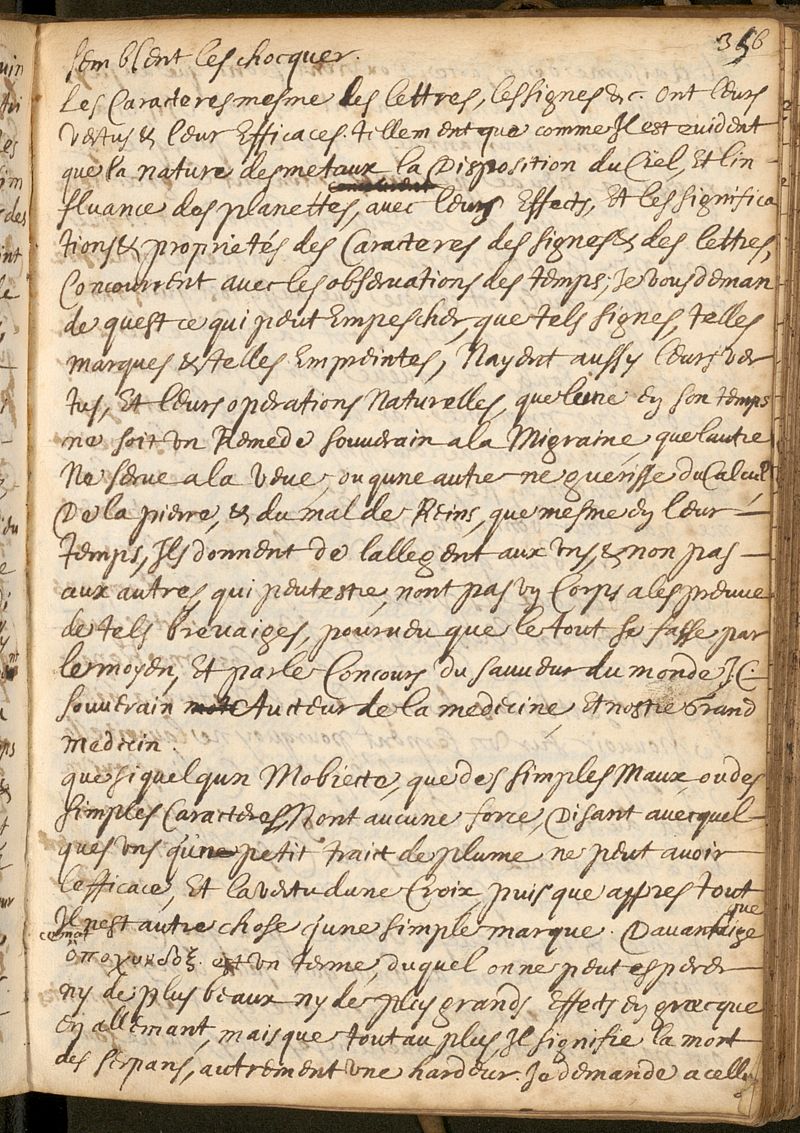 356
semblent les chocquer.
Les Caracteres mesme des lettres, les signes &c. ont leurs
vertus & leur Efficaces. tellement que comme Il est evident
que la nature des metaux la Disposition du Ciel, Et lin-
fluance des planettes, avec leurs Effects, Et les significa
tions & proprietés des Caracteres des signes & des lettres,
Concourrent avec les observations des temps; Je vous deman
de quest ce qui peut Empescher, que tels signes, telles
marques & telles Empreintes, Nayent aussy leurs ver
tus, Et leurs operations Naturelles, que lune en son temps
ne soit un Remede souverain a la Migraine, que lautre
Ne serve a la veue, ou qune autre ne guerisse du Calcul
De la pierre, & du mal de Reins, que mesme en leur —
temps, Ils donnent de lallegent aux uns, & non pas —
aux autres, qui peutestre, nont pas un Corps a lespreuve
de tels brevaiges, pourveu que le tout se fasse par
le moyen, Et par le Concours du sauveur du monde J.C.
souverain Aucteur de la medecine, Et nostre Grand
Medecin.
que si quelqun Mobiecte, que des simples Maux ou des
simples Caracteres, Nont aucune force, Disant avec quel-
ques uns qu'un petit traict de plume ne peut avoir
lefficace, Et la vertu dune Croix puis que appres tout
Il nest autre chose qune simple marque. Davantaige que
est un terme, duquel on ne peut esperer
ny de plus beaux ny de plus grands Effects en græcque
En allemant, mais que tout au plus, Il signifie la mort
des serpans, autrement une hardeur. Je demande a celle